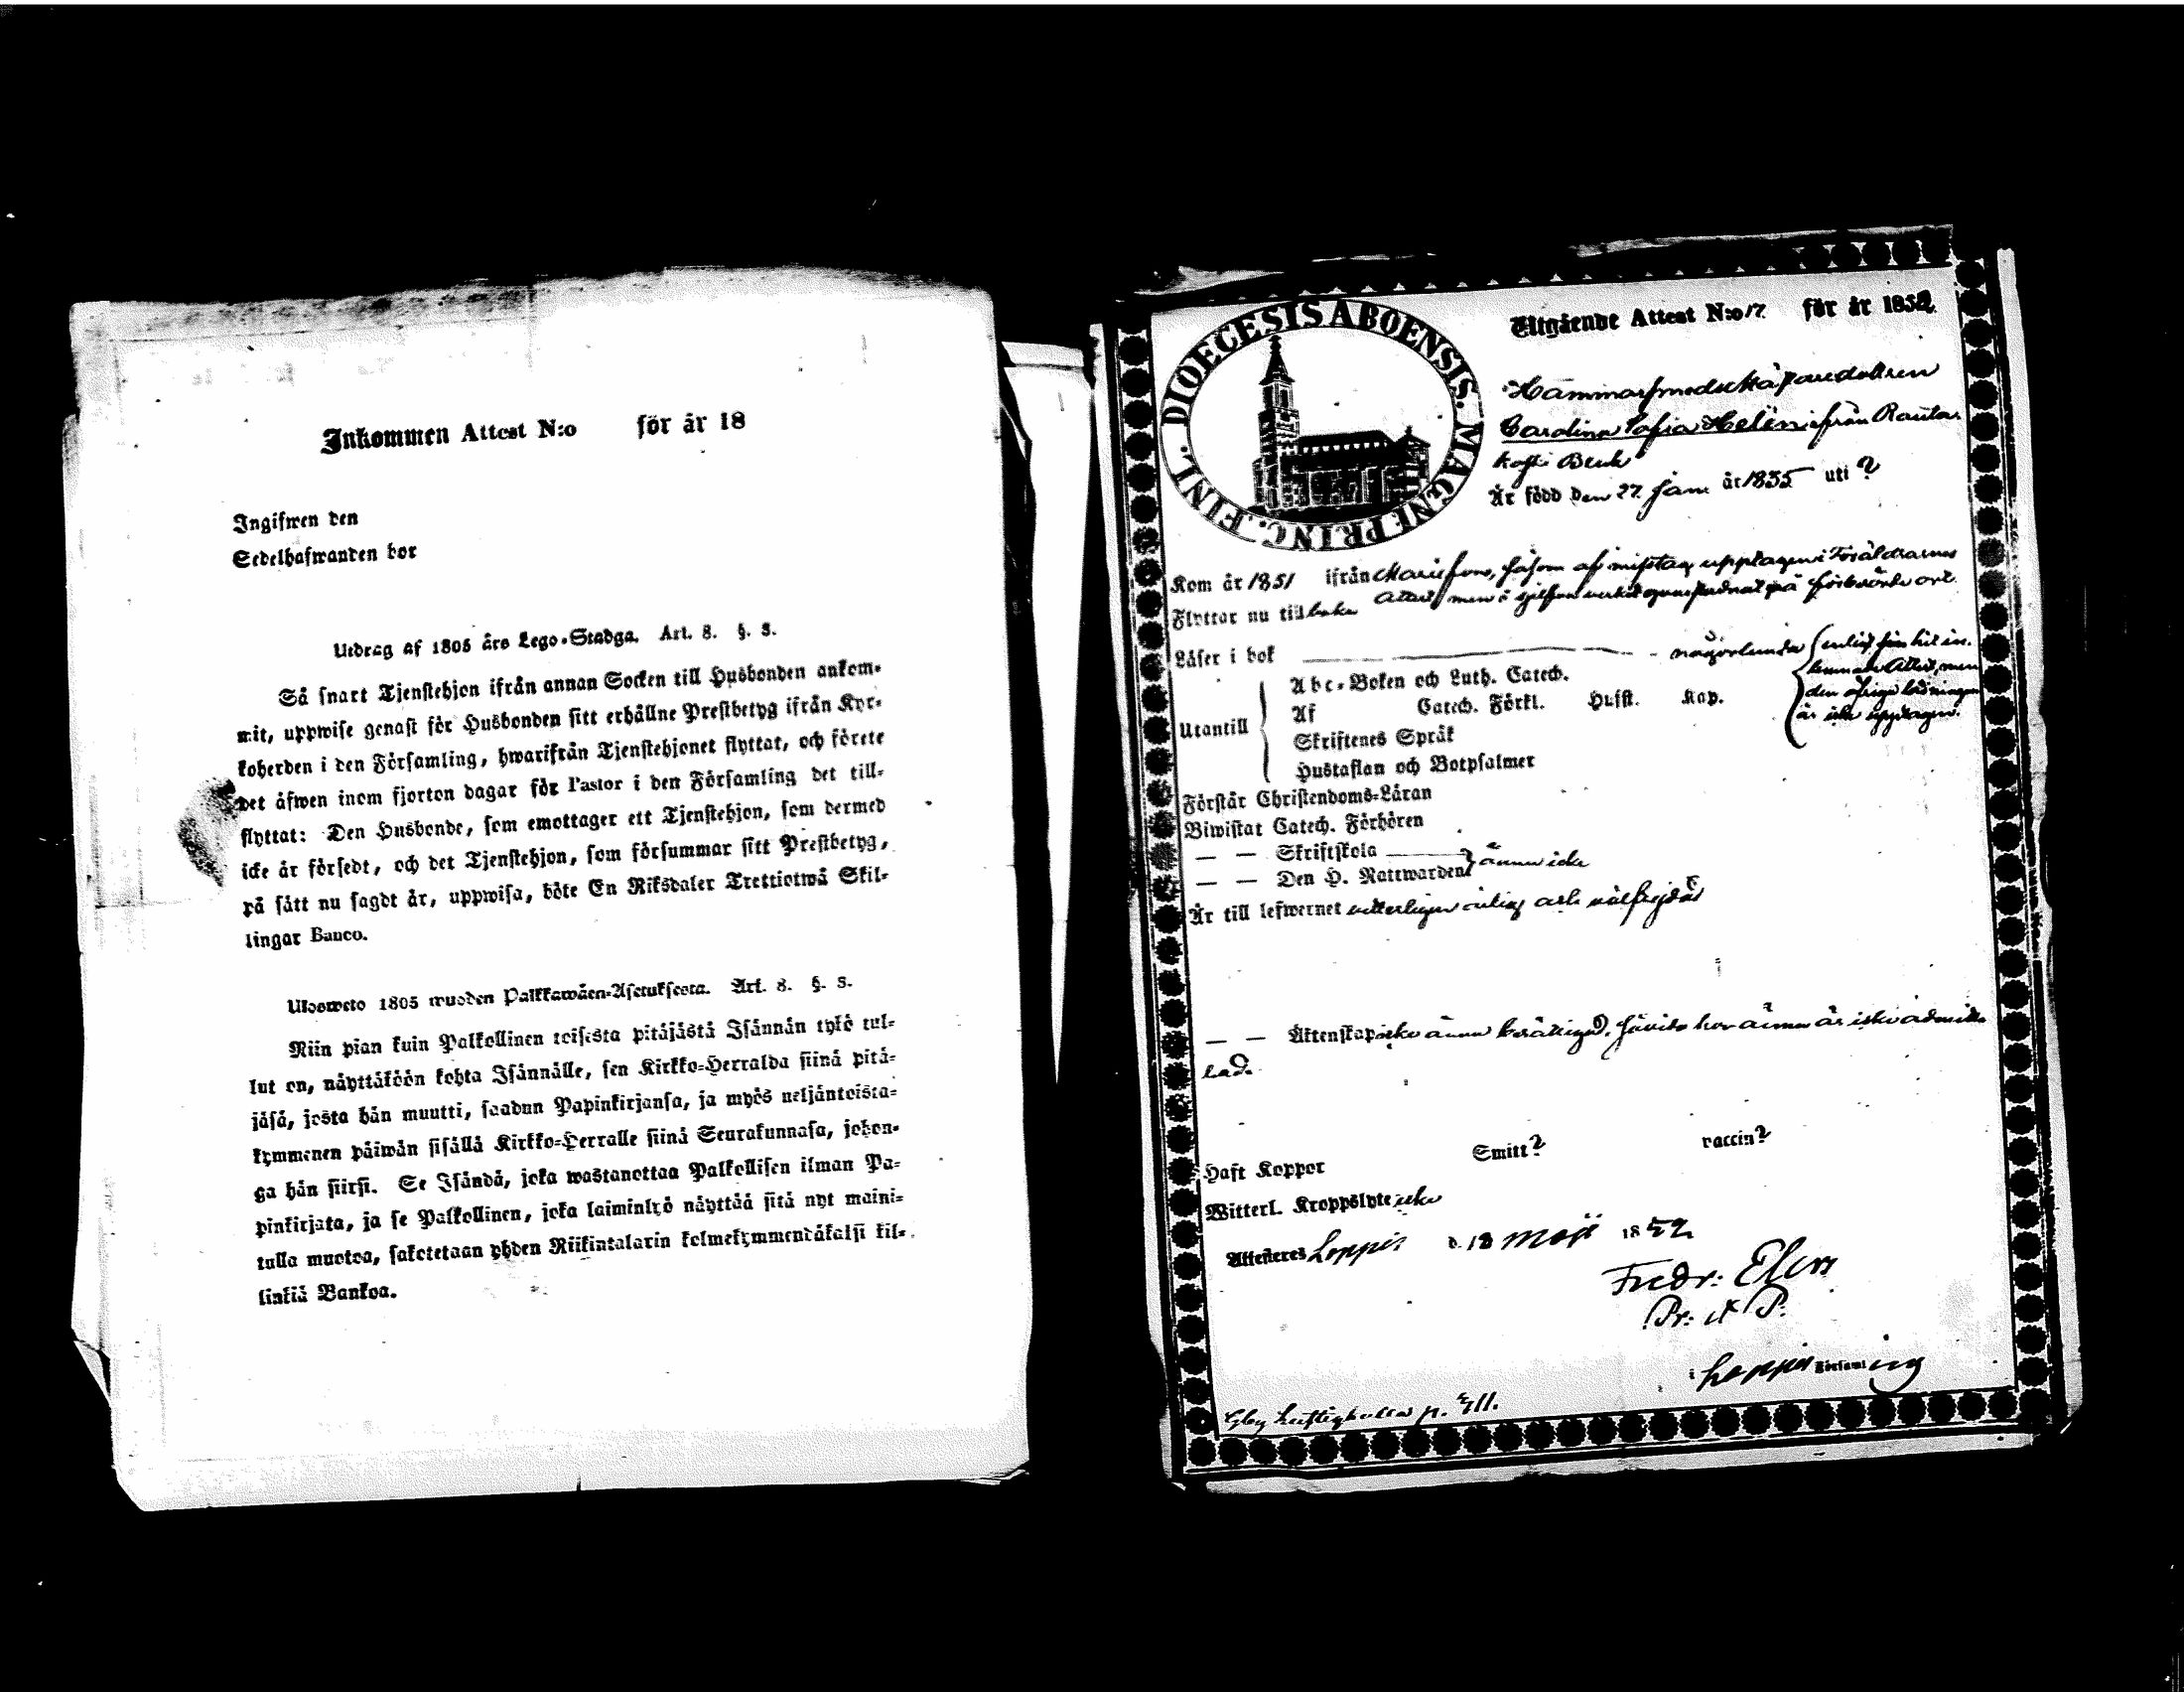 Inkommen Attest N:o för år 18
Ingifwen den
Sedelhafwanden bor
Utdrag af 1805 års Lego-Stadga. Art. 8. §. 3.
Så snart Tjenstehjon ifrån annan Socken till Husbonden ankom-
mit, uppwise genast för Husbonden sitt erhållne Prestbetyg ifrån Kyr-
koherden i den Församling, hwarifrån Tjenstehjonet flyttat, och förete
det äfwen inom fjorton dagar för Pastor i den Församling det till-
flyttat: Den Husbonde, som emottager ett Tjenstehjon, som dermed
icke är försedt, och det Tjenstehjon, som försummar sitt Prestbetyg,
på sätt nu sagdt är, uppwisa, böte En Riksdaler Trettiotwå Skil-
lingar Banco.
Ulosweto 1805 wuoden Palkkawäen-Asetuksesta. Art. 8. §. 3.
Niin pian kuin Palkollinen toisesta pitäjästä Isännän tykö tul-
lut on, näyttäköön kohta Isännälle, sen Kirkko-Herralda siinä pitä-
jäsä, josta hän muutti, saadun Papinkirjansa, ja myös neljäntoista-
kymmenen päiwän sisällä Kirkko-Herralle siinä Seurakunnasa, johon-
ga hän siirsi. Se Isändä, joka wastanottaa Palkollisen ilman Pa-
pinkirjata, ja se Palkollinen, joka laiminlyö näyttää sitä nyt maini-
tulla muotoa, sakotetaan yhden Riikintalarin kolmekymmendäkaksi kil-
linkiä Bankoa.
DIOECESIS ABOENSIS. MAGNE PRINC. FINL.
Utgående Attest N:o 17 för år 1852
Hammarsmedsskäparedottren
Carolina Sofia Helén ifrån Rauta-
koski Bruk
Är född den 27 Jan. år 1835 uti ?
Kom år 1851 ifrån Mariefors, såsom af misstag upptagen i Föräldrarnes
Flyttar nu tillbaka Attest, men i sjelfva verket qvarstadnat på förberörde ort.
Läser i bok någorlunda enligt sin hit in-
lemnade Attest, men
den öfriga läsningen
är icke upptagen.
Utantill
Abc-Boken och Luth. Catech.
Af Catech. Förkl. Hufst. Kap.
Skriftenes Språk
Hustaflan och Botpsalmer
Förstår Christendoms-Läran
Biwistat Catech. Förhören
— — Skriftskola
— — Den H. Nattwarden ännu icke
Är till lefwernet veterligen ärlig och välfrejdad
— — Äktenskap icke ännu berättigad, såvida hon ännu är icke admitte-
rad.
Haft Koppor Smitt? vaccin?
Witterl. Kroppslyte icke
Attesteras Loppis d. 18 Maji 1852
Fredr: Elers
Pr: et P:
i Loppis Församling
p. 411.